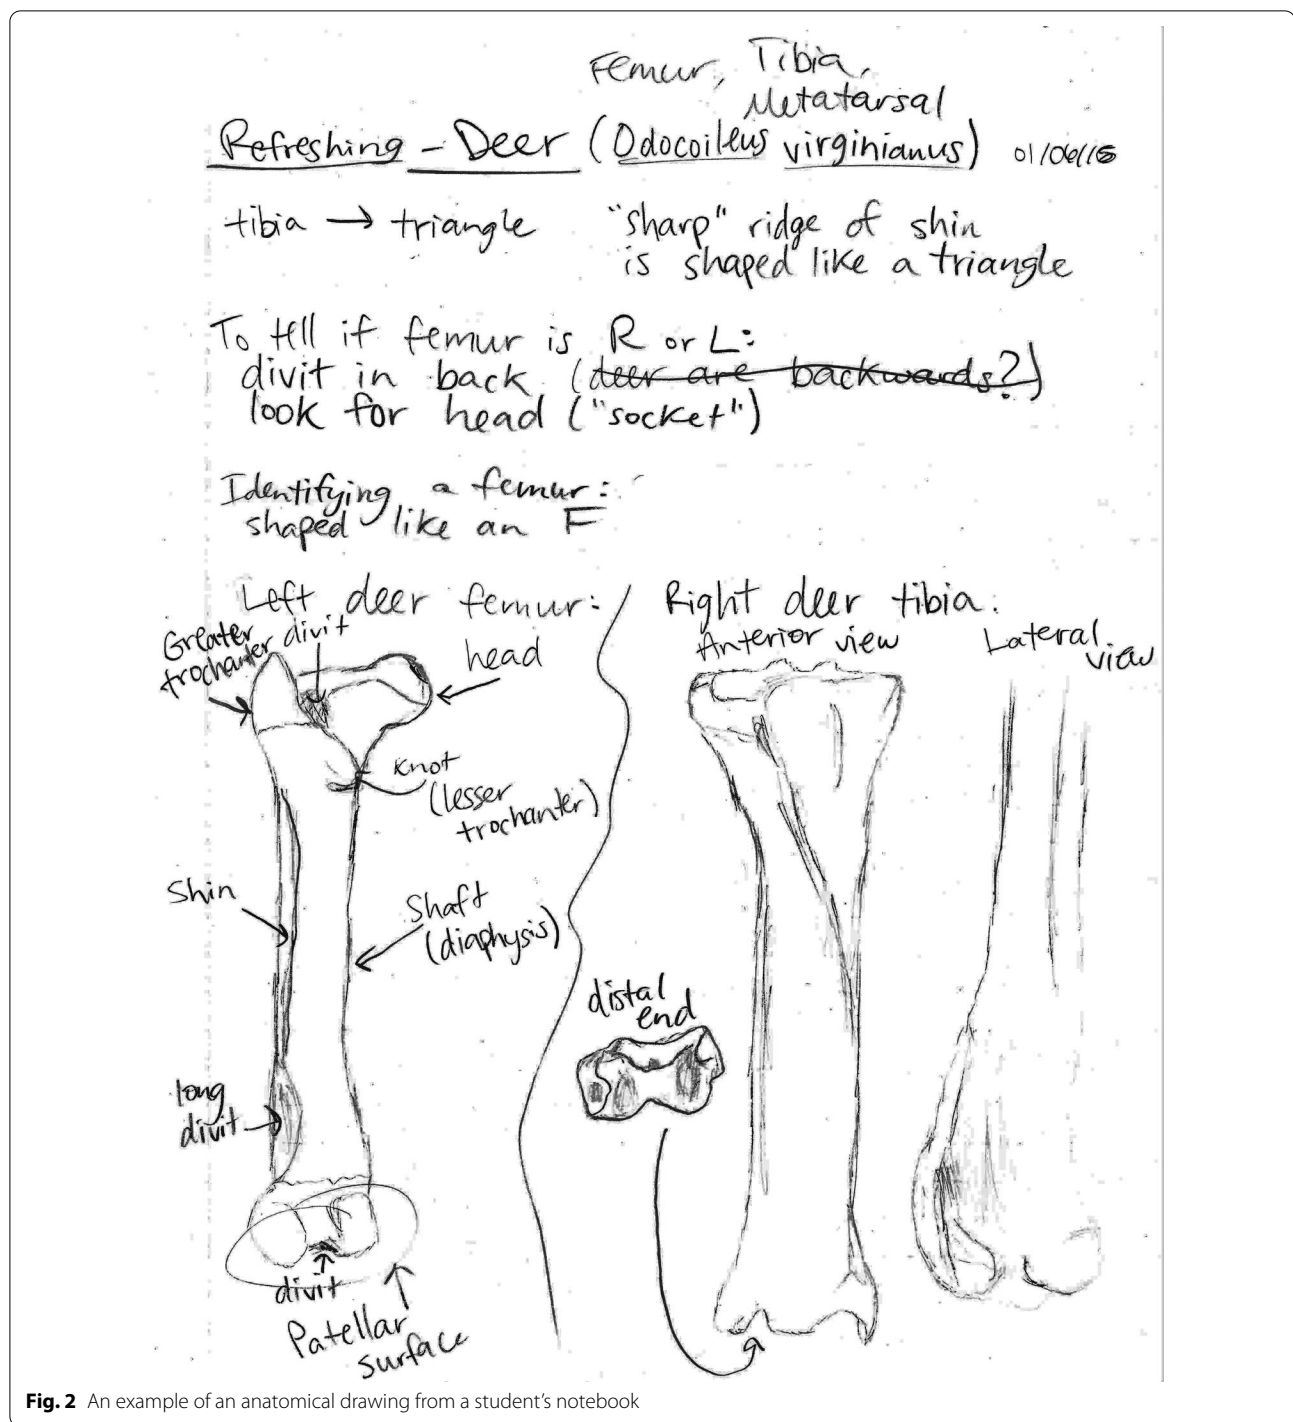 Femur, Tibia,
Metatarsal
Refreshing - Deer (Odocoileus virginianus) 01/06/15
tibia → triangle "sharp" ridge of shin
is shaped like a triangle
To tell if femur is R or L:
divit in back (deer are backwards?)
look for head ("socket")
Identifying a femur:
shaped like an F
Left deer femur:
Greater
trochanter
divit
head
Knot
(lesser
trochanter)
Shin
Shaft
(diaphysis)
long
divit
divit
Patellar
surface
Right deer tibia:
Anterior view
Lateral
view
distal
end
Fig. 2 An example of an anatomical drawing from a student's notebook